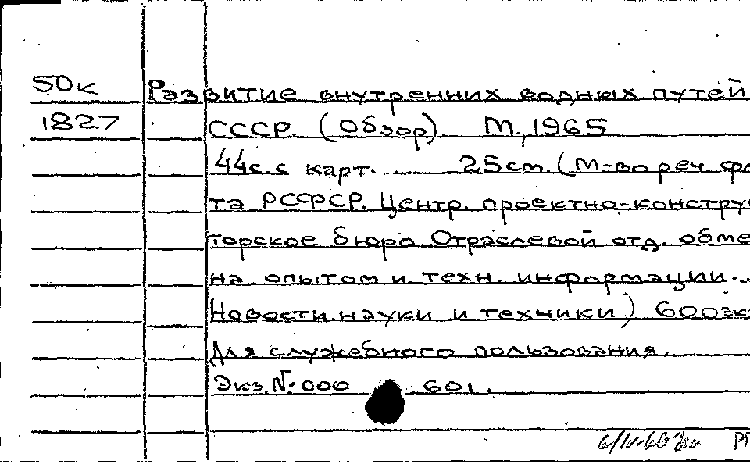 50к Развитие внутренних водных путей
1827 СССР. (Обзор). М, 1965
44с. с карт. 25 cm. (М-во реч. фло
та РСФСР. Центр. проектно-конструк
торское бюро Отраслевой отд. обме
на опытом и техн. информации.
Новости науки и техники) 600 эк
Для служебного пользования.
Экз. №: 000 601.